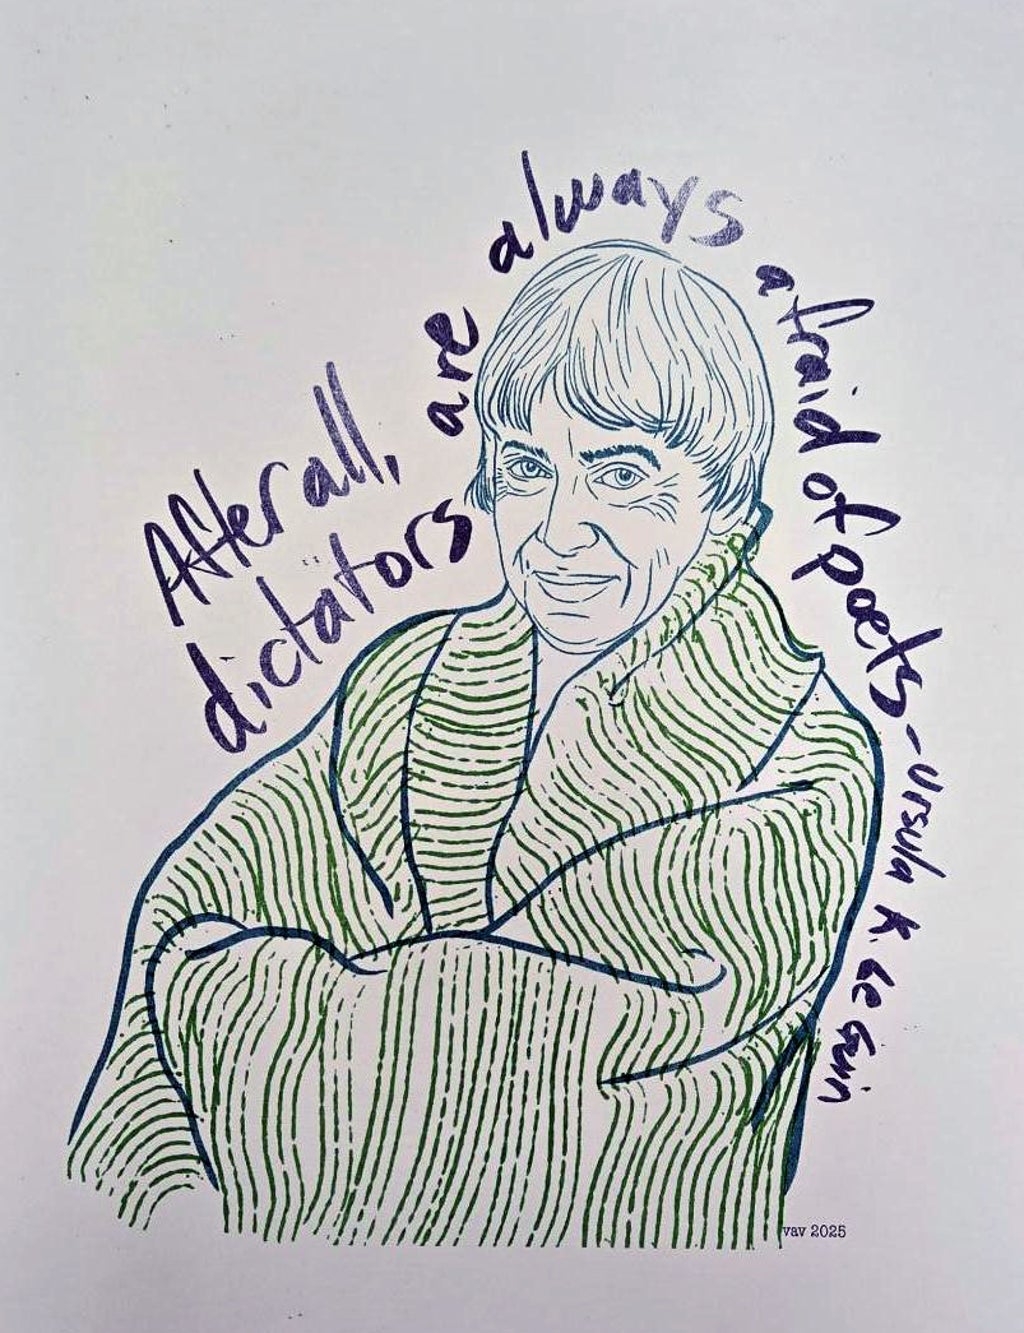 After all,
dictators
are always afraid of poets - Ursula K. Le Guin
vav 2025